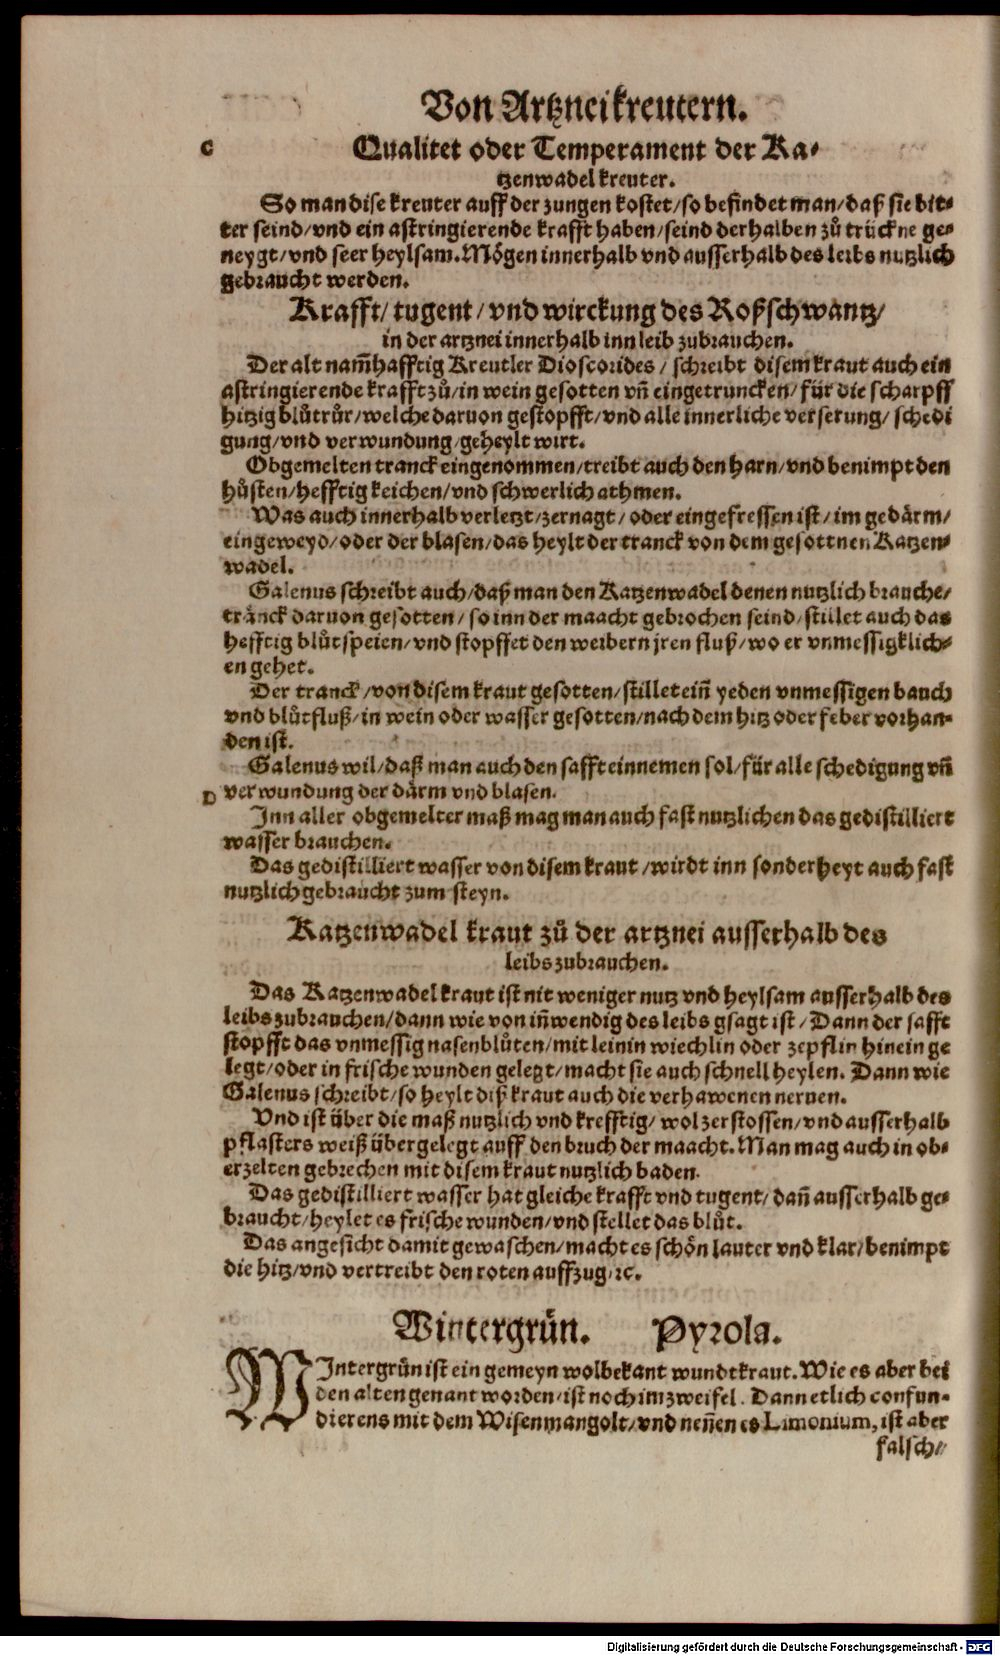 Von Artzneikreutern.
C
Qualitet oder Temperament der Ka-
tzenwadel kreuter.
So man dise kreuter auff der zungen kostet/so befindet man/daß sie bit-
ter seind/vnd ein astringierende krafft haben/seind derhalben zů trückne ge-
neygt/vnd seer heylsam. Mögen innerhalb vnd ausserhalb des leibs nutzlich
gebraucht werden.
Krafft/tugent/vnd wirckung des Roßschwantz/
in der artznei innerhalb inn leib zubrauchen.
Der alt nam̃hafftig Kreutler Dioscorides/schreibt disem kraut auch ein
astringierende krafft zů/in wein gesotten vñ eingetruncken/für die scharpff
hitzig blůtrůr/welche daruon gestopfft/vnd alle innerliche verserung/schedi
gung/vnd verwundung/geheylt wirt.
Obgemelten tranck eingenommen/treibt auch den harn/vnd benimpt den
hůsten/hefftig keichen/vnd schwerlich athmen.
Was auch innerhalb verletzt/zernagt/oder eingefressen ist/im gedärm/
eingeweyd/oder der blasen/das heylt der tranck von dem gesottnen Katzen-
wadel.
Galenus schreibt auch/daß man den Katzenwadel denen nutzlich brauche/
tränck daruon gesotten/so inn der maacht gebrochen seind/stillet auch das
hefftig blůtspeien/vnd stopffet den weibern jren fluß/wo er vnmessigklich-
en gehet.
Der tranck/von disem kraut gesotten/stillet eiñ yeden vnmessigen bauch
vnd blůtfluß/in wein oder wasser gesotten/nach dem hitz oder feber vorhan-
den ist.
Galenus wil/daß man auch den safft einnemen sol/für alle schedigung vñ
D
verwundung der därm vnd blasen.
Inn aller obgemelter maß mag man auch fast nutzlichen das gedistilliert
wasser brauchen.
Das gedistilliert wasser von disem kraut/wirdt inn sonderheyt auch fast
nutzlich gebraucht zum steyn.
Katzenwadel kraut zů der artznei ausserhalb des
leibs zubrauchen.
Das Katzenwadel kraut ist nit weniger nutz vnd heylsam ausserhalb des
leibs zubrauchen/dann wie von iñwendig des leibs gsagt ist/Dann der safft
stopfft das vnmessig nasenblůten/mit leinin wiechlin oder zepflin hinein ge
legt/oder in frische wunden gelegt/macht sie auch schnell heylen. Dann wie
Galenus schreibt/so heylt diß kraut auch die verhawenen neruen.
Vnd ist über die maß nutzlich vnd krefftig/wol zerstossen/vnd ausserhalb
pflasters weiß übergelegt auff den bruch der maacht. Man mag auch in ob-
erzelten gebrechen mit disem kraut nutzlich baden.
Das gedistilliert wasser hat gleiche krafft vnd tugent/dañ ausserhalb ge-
braucht/heylet es frische wunden/vnd stellet das blůt.
Das angesicht damit gewaschen/macht es schön lauter vnd klar/benimpt
die hitz/vnd vertreibt den roten auffzug/ꝛc.
Wintergrün. Pyrola.
WIntergrün ist ein gemeyn wolbekant wundtkraut. Wie es aber bei
den alten genant worden/ist noch im zweifel. Dann etlich confun-
dierens mit dem Wisenmangolt/vnd neñen es Limonium, ist aber
falsch/
Digitalisierung gefördert durch die Deutsche Forschungsgemeinschaft - DFG